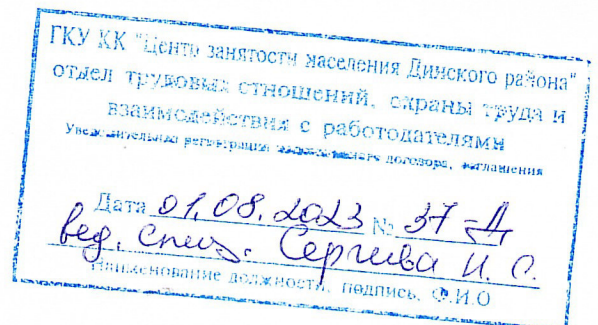 ГКУ КК "Центр занятости населения Динского района"
отдел трудовых отношений, охраны труда и
взаимодействия с работодателями
Уведомительная регистрация коллективного договора, соглашения
Дата 01.08.2023 № 37-Д
вед. спец. Сергиева И. С.
Наименование должности, подпись, Ф.И.О